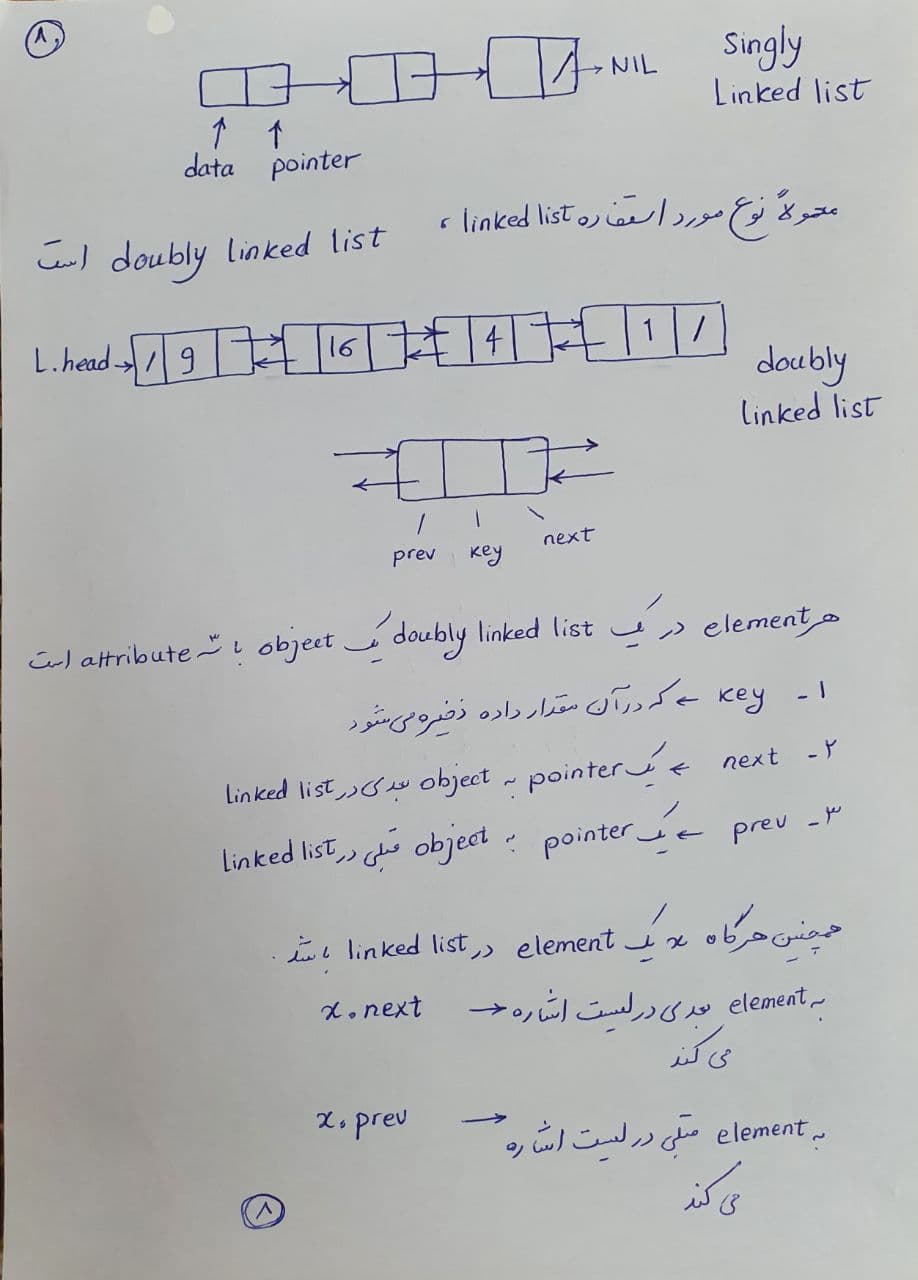 ۸
Singly
Linked list
NIL
data pointer
معمولاً نوع مورد استفاده linked list ، doubly linked list است
L.head → / 9 16 4 1 /
doubly
linked list
prev key next
هر element در یک doubly linked list یک object با سه attribute است
۱ - key ← که در آن مقدار داده ذخیره می‌شود
۲ - next ← یک pointer به object بعدی در linked list
۳ - prev ← یک pointer به object قبلی در linked list
همچنین هرگاه x یک element در linked list باشد.
x.next → به element بعدی در لیست اشاره
می کند
x.prev → به element قبلی در لیست اشاره
می کند
۸